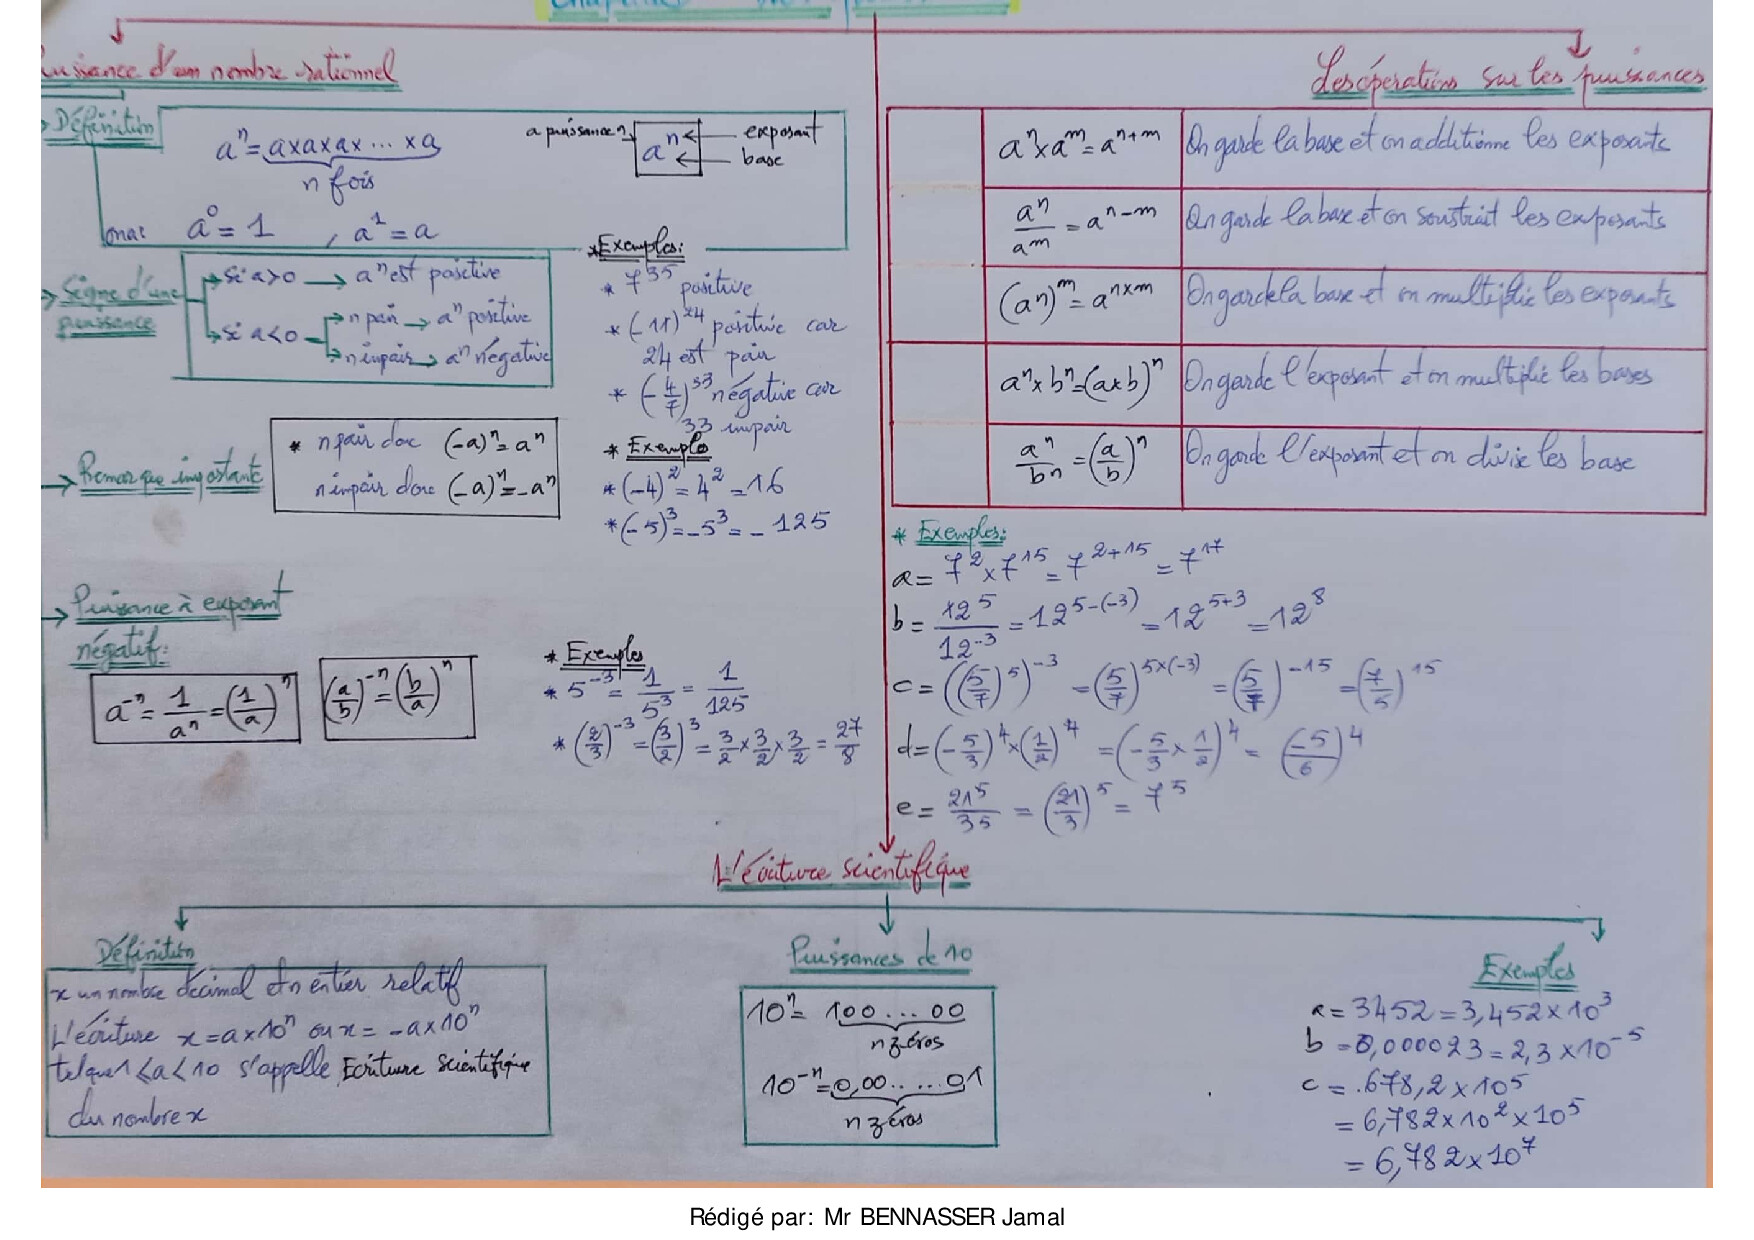 Puissance d'un nombre rationnel
Définition
aⁿ = a×a×a×...×a
n fois
a puissance n
aⁿ
exposant
base
on a: a⁰ = 1 , a¹ = a
Signe d'une puissance
Si a>0 → aⁿ est positive
Si a<0
n pair → aⁿ positive
n impair → aⁿ négative
*Exemples:
* 7³⁵ positive
* (-11)²⁴ positive car
24 est pair
* (-4/7)³³ négative car
33 impair
Remarque importante
* n pair donc (-a)ⁿ = aⁿ
n impair donc (-a)ⁿ = -aⁿ
* Exemple
* (-4)² = 4² = 16
* (-5)³ = -5³ = -125
Puissance à exposant
négatif:
a⁻ⁿ = 1/aⁿ = (1/a)ⁿ
(a/b)⁻ⁿ = (b/a)ⁿ
* Exemples
* 5⁻³ = 1/5³ = 1/125
* (2/3)⁻³ = (3/2)³ = 3/2 × 3/2 × 3/2 = 27/8
Les opérations sur les puissances
aⁿ × aᵐ = aⁿ⁺ᵐ On garde la base et on additionne les exposants
aⁿ/aᵐ = aⁿ⁻ᵐ On garde la base et on soustrait les exposants
(aⁿ)ᵐ = aⁿˣᵐ On garde la base et on multiplie les exposants
aⁿ × bⁿ = (a×b)ⁿ On garde l'exposant et on multiplie les bases
aⁿ/bⁿ = (a/b)ⁿ On garde l'exposant et on divise les base
* Exemples:
a = 7² × 7¹⁵ = 7²⁺¹⁵ = 7¹⁷
b = 12⁵/12⁻³ = 12⁵⁻⁽⁻³⁾ = 12⁵⁺³ = 12⁸
c = ((5/7)⁵)⁻³ = (5/7)⁵ˣ⁽⁻³⁾ = (5/7)⁻¹⁵ = (7/5)¹⁵
d = (-5/3)⁴ × (1/2)⁴ = (-5/3 × 1/2)⁴ = (-5/6)⁴
e = 21⁵/3⁵ = (21/3)⁵ = 7⁵
L'écriture scientifique
Définition
x un nombre décimal et n entier relatif
L'écriture x = a×10ⁿ ou x = -a×10ⁿ
tel que 1 ≤ a < 10 s'appelle Ecriture scientifique
du nombre x
Puissances de 10
10ⁿ = 100...00
n zéros
10⁻ⁿ = 0,00......01
n zéros
Exemples
a = 3452 = 3,452×10³
b = 0,000023 = 2,3×10⁻⁵
c = 678,2×10⁵
= 6,782×10²×10⁵
= 6,782×10⁷
Rédigé par: Mr BENNASSER Jamal